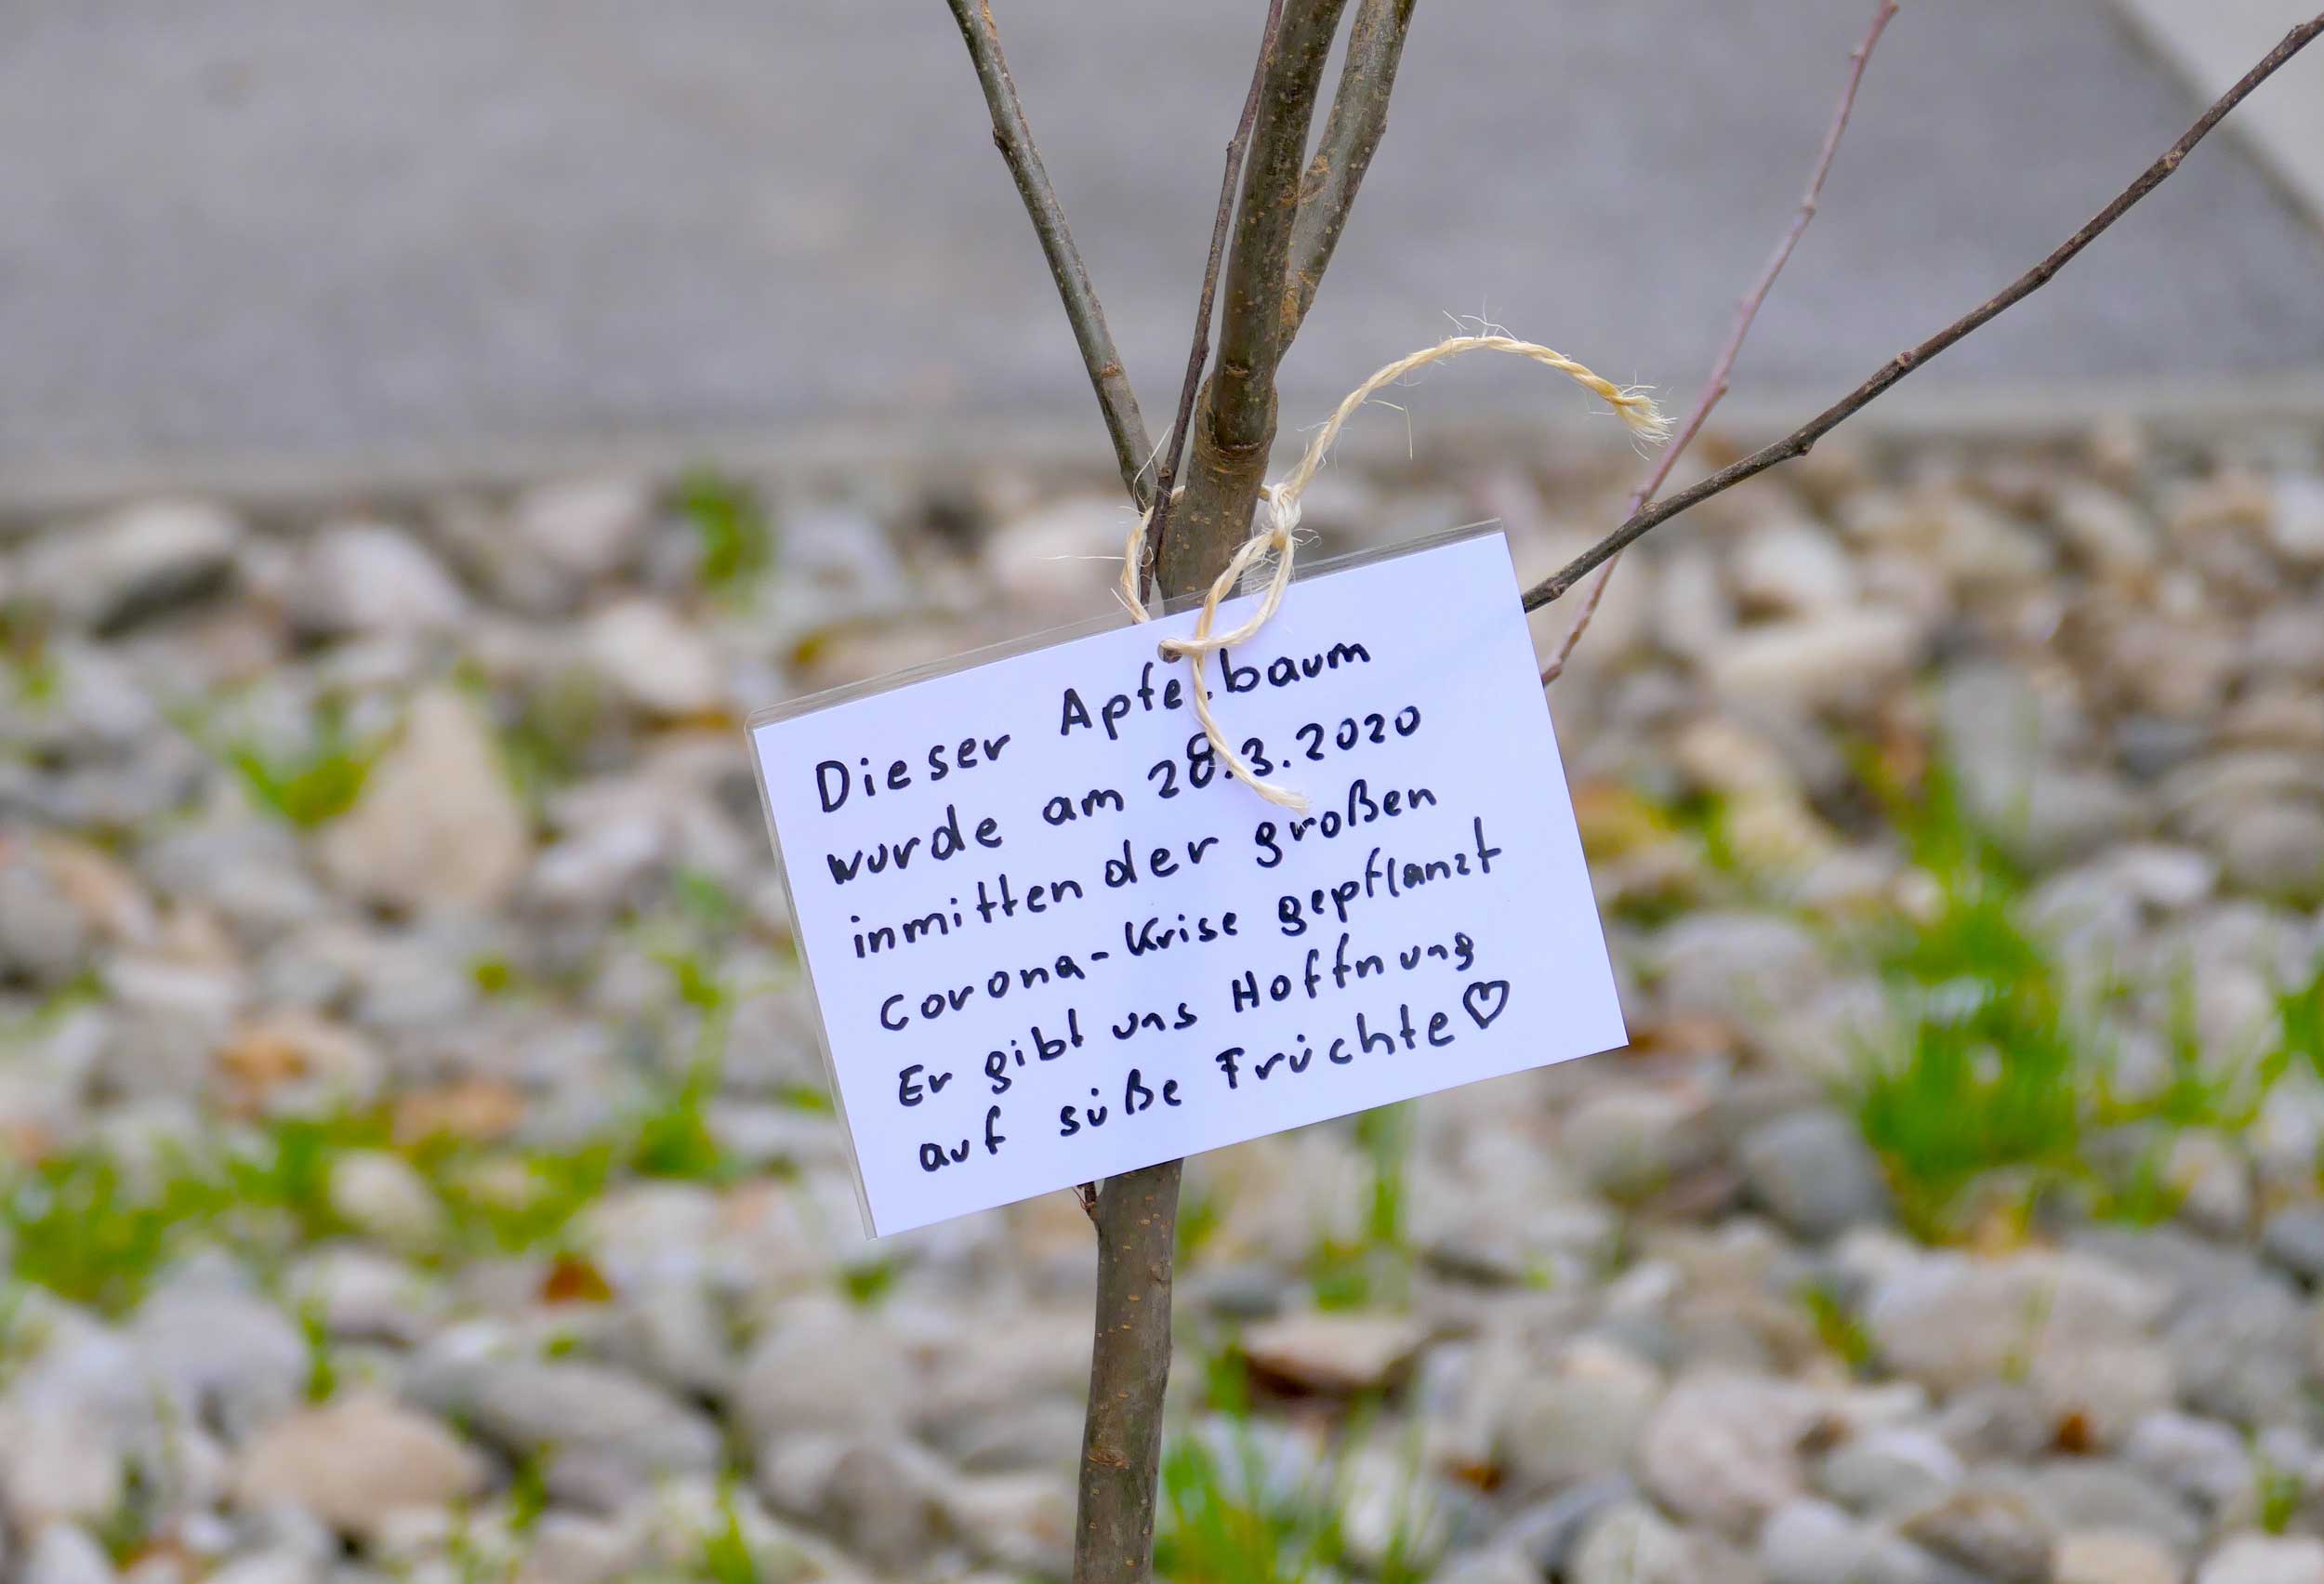 Dieser Apfelbaum
wurde am 28.3.2020
inmitten der großen
Corona-Krise gepflanzt
Er gibt uns Hoffnung
auf süße Früchte♡